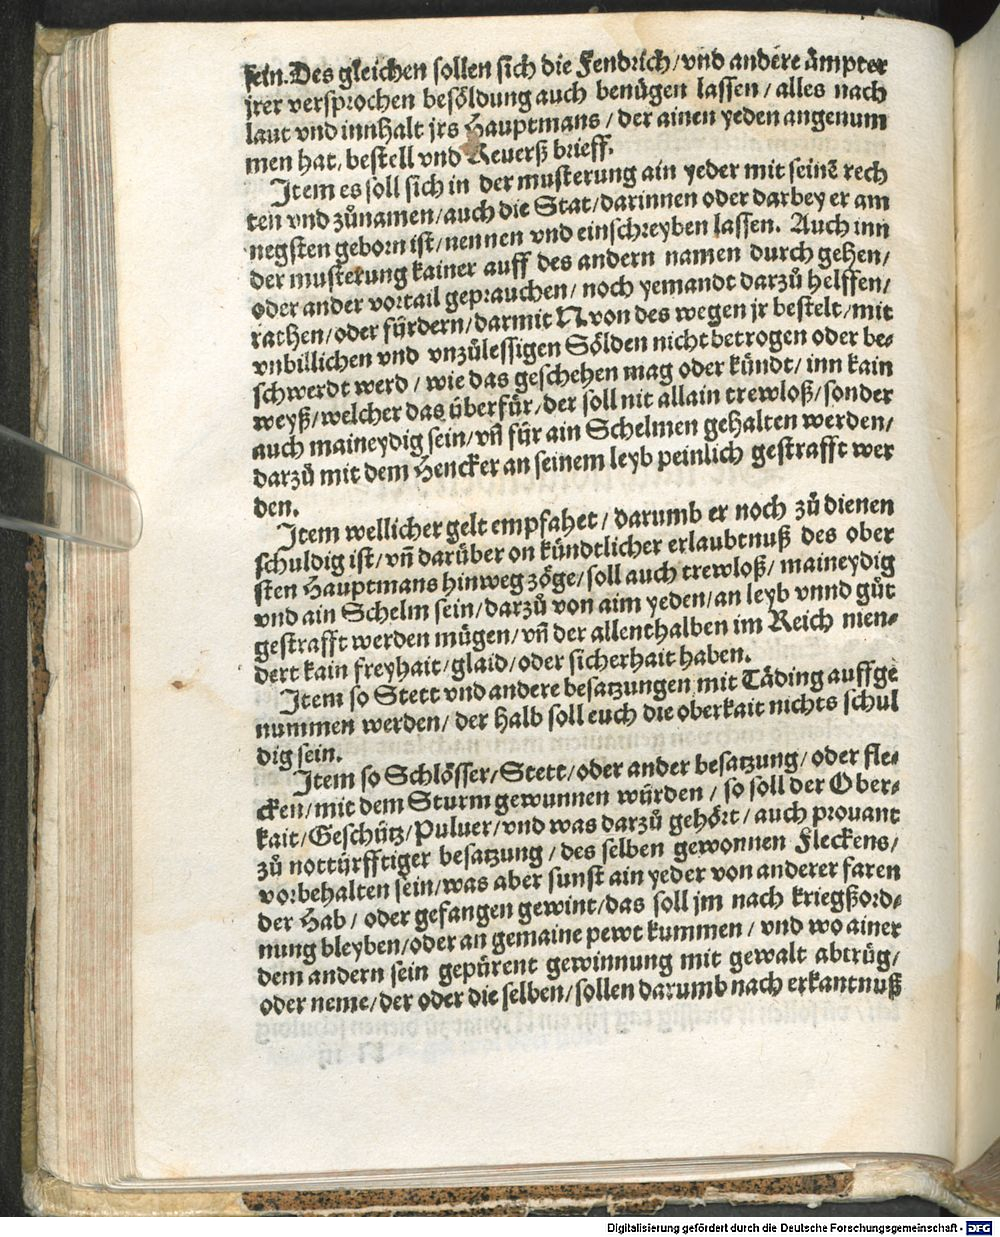 sein. Des gleichen sollen sich die Fendrich/ vnd andere ämpter
jrer versprochen besöldung auch benügen lassen/ alles nach
laut vnd innhalt jrs Hauptmans/ der ainen yeden angenum
men hat, bestell vnd Reuerß brieff.
Item es soll sich in der musterung ain yeder mit seinē rech
ten vnd zůnamen/ auch die Stat/ darinnen oder darbey er am
negsten geborn ist/ nennen vnd einschreyben lassen. Auch inn
der musterung kainer auff des andern namen durch gehen/
oder ander vortail geprauchen/ noch yemandt darzů helffen/
rathen/ oder fürdern/ darmit N. von des wegen jr bestelt/ mit
vnbillichen vnd vnzůlessigen Sölden nicht betrogen oder be-
schwerdt werd/ wie das geschehen mag oder kündt/ inn kain
weyß/ welcher das überfür/ der soll nit allain trewloß/ sonder
auch maineydig sein/ vñ für ain Schelmen gehalten werden/
darzů mit dem Hencker an seinem leyb peinlich gestrafft wer
den.
Item wellicher gelt empfahet/ darumb er noch zů dienen
schuldig ist/ vñ darüber on kündtlicher erlaubtnuß des ober
sten Hauptmans hinweg zöge/ soll auch trewloß/ maineydig
vnd ain Schelm sein/ darzů von aim yeden/ an leyb vnnd gůt
gestrafft werden mügen/ vñ der allenthalben im Reich nien-
dert kain freyhait/ glaid/ oder sicherhait haben.
Item so Stett vnd andere besatzungen mit Täding auffge
nummen werden/ der halb soll euch die oberkait nichts schul
dig sein.
Item so Schlösser/ Stett/ oder ander besatzung/ oder fle-
cken/ mit dem Sturm gewunnen würden/ so soll der Ober-
kait/ Geschütz/ Puluer/ vnd was darzů gehört/ auch prouant
zů nottürfftiger besatzung/ des selben gewonnen Fleckens/
vorbehalten sein/ was aber sunst ain yeder von anderer faren
der Hab/ oder gefangen gewint/ das soll jm nach kriegßord-
nung bleyben/ oder an gemaine pewt kummen/ vnd wo ainer
dem andern sein gepürent gewinnung mit gewalt abtrüg/
oder neme/ der oder die selben/ sollen darumb nach erkantnuß
Digitalisierung gefördert durch die Deutsche Forschungsgemeinschaft - DFG